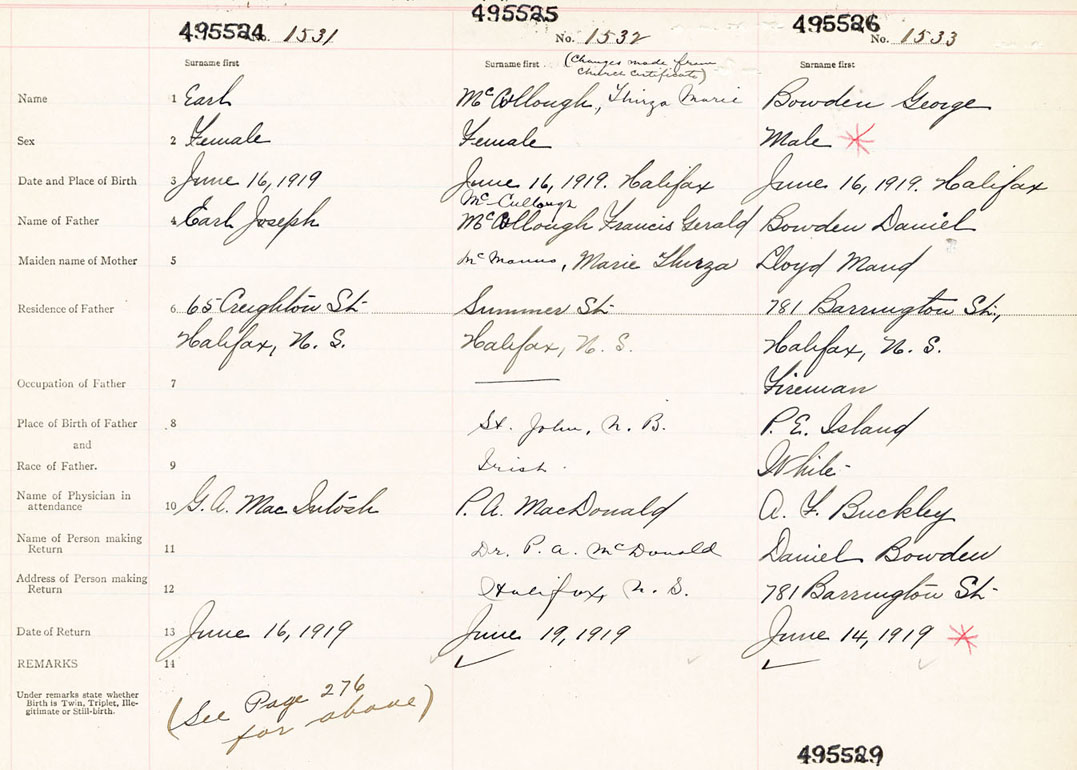 495524 No. 1531 495525 No. 1532 495526 No. 1533
Surname first Surname first (Changes made from Surname first
church certificate)
Name 1 Earl McCollough, Thirza Marie Bowden George
Sex 2 Female Female Male
Date and Place of Birth 3 June 16, 1919 June 16, 1919. Halifax June 16, 1919. Halifax
McCullough
Name of Father 4 Earl Joseph McCollough Francis Gerald Bowden Daniel
Maiden name of Mother 5 McManus, Marie Thirza Lloyd Maud
Residence of Father 6 65 Creighton St Summer St 781 Barrington St.,
Halifax, N. S. Halifax, N. S. Halifax, N. S.
Occupation of Father 7 Fireman
Place of Birth of Father 8 St. John, N. B. P. E. Island
and
Race of Father. 9 Irish. White
Name of Physician in
attendance 10 G. A. MacIntosh P. A. MacDonald A. F. Buckley
Name of Person making
Return 11 Dr. P. A. McDonald Daniel Bowden
Address of Person making
Return 12 Halifax, N. S. 781 Barrington St
Date of Return 13 June 16, 1919 June 19, 1919 June 14, 1919
REMARKS 14
Under remarks state whether
Birth is Twin, Triplet, Ille-
gitimate or Still-birth.
(See Page 276
for above)
495529